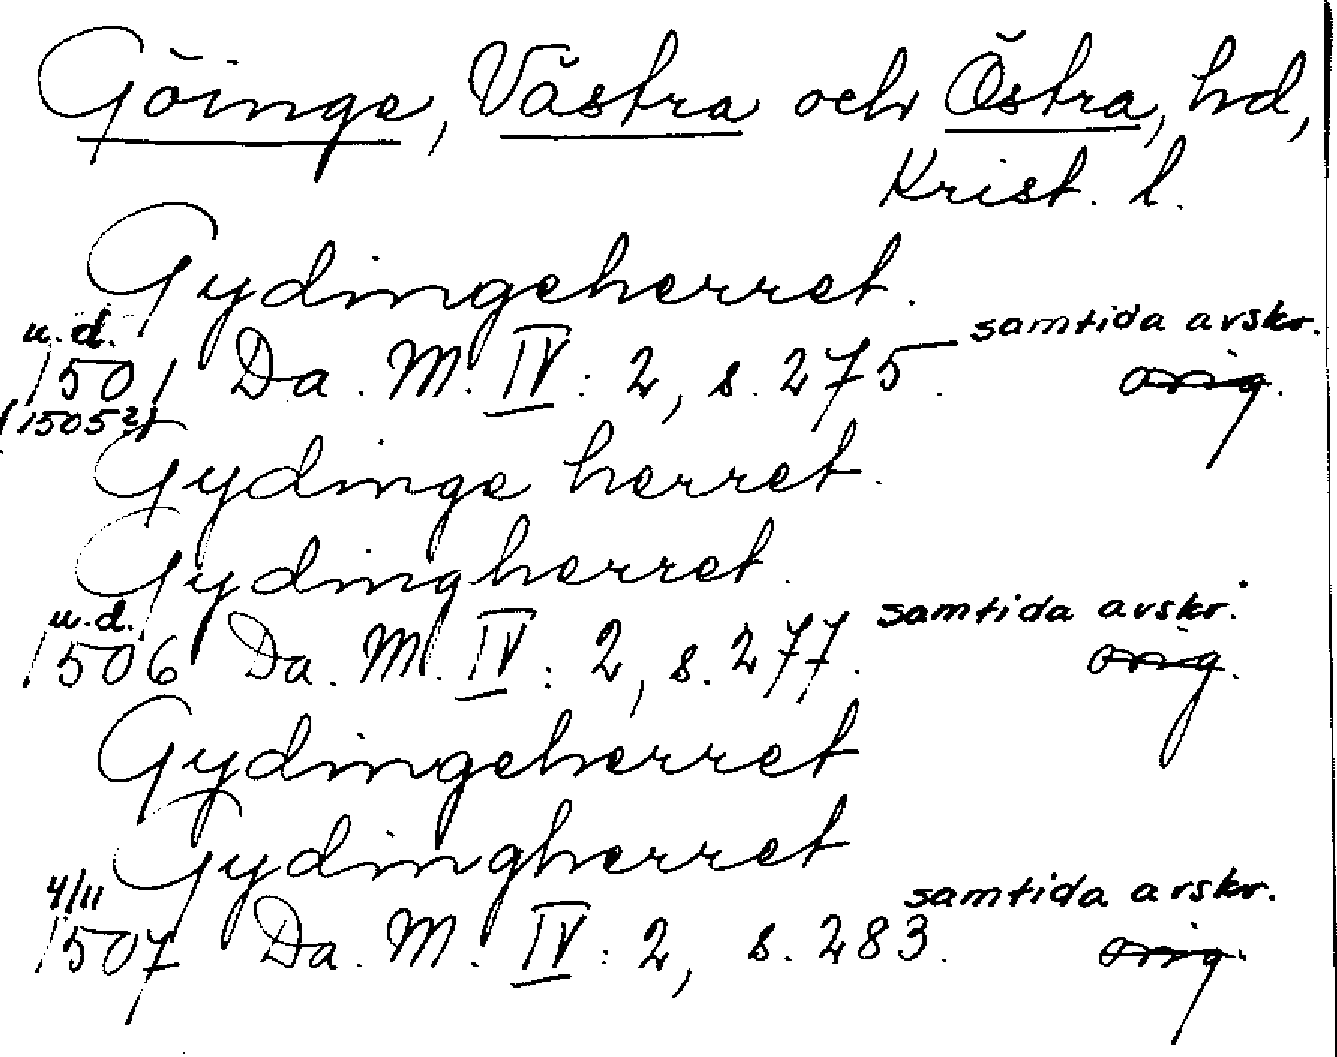 Göinge, Västra och Östra, hd,
Krist. l.
Gydingeherret.
u.d. samtida avskr.
1501 Da. M. IV: 2, s. 275. orig.
(1505?)
Gydinge herret.
Gydingherret.
u.d. samtida avskr.
1506 Da. M. IV: 2, s. 277. orig.
Gydingeherret
Gydingherret
4/11 samtida avskr.
1507 Da. M. IV: 2, s. 283. orig.